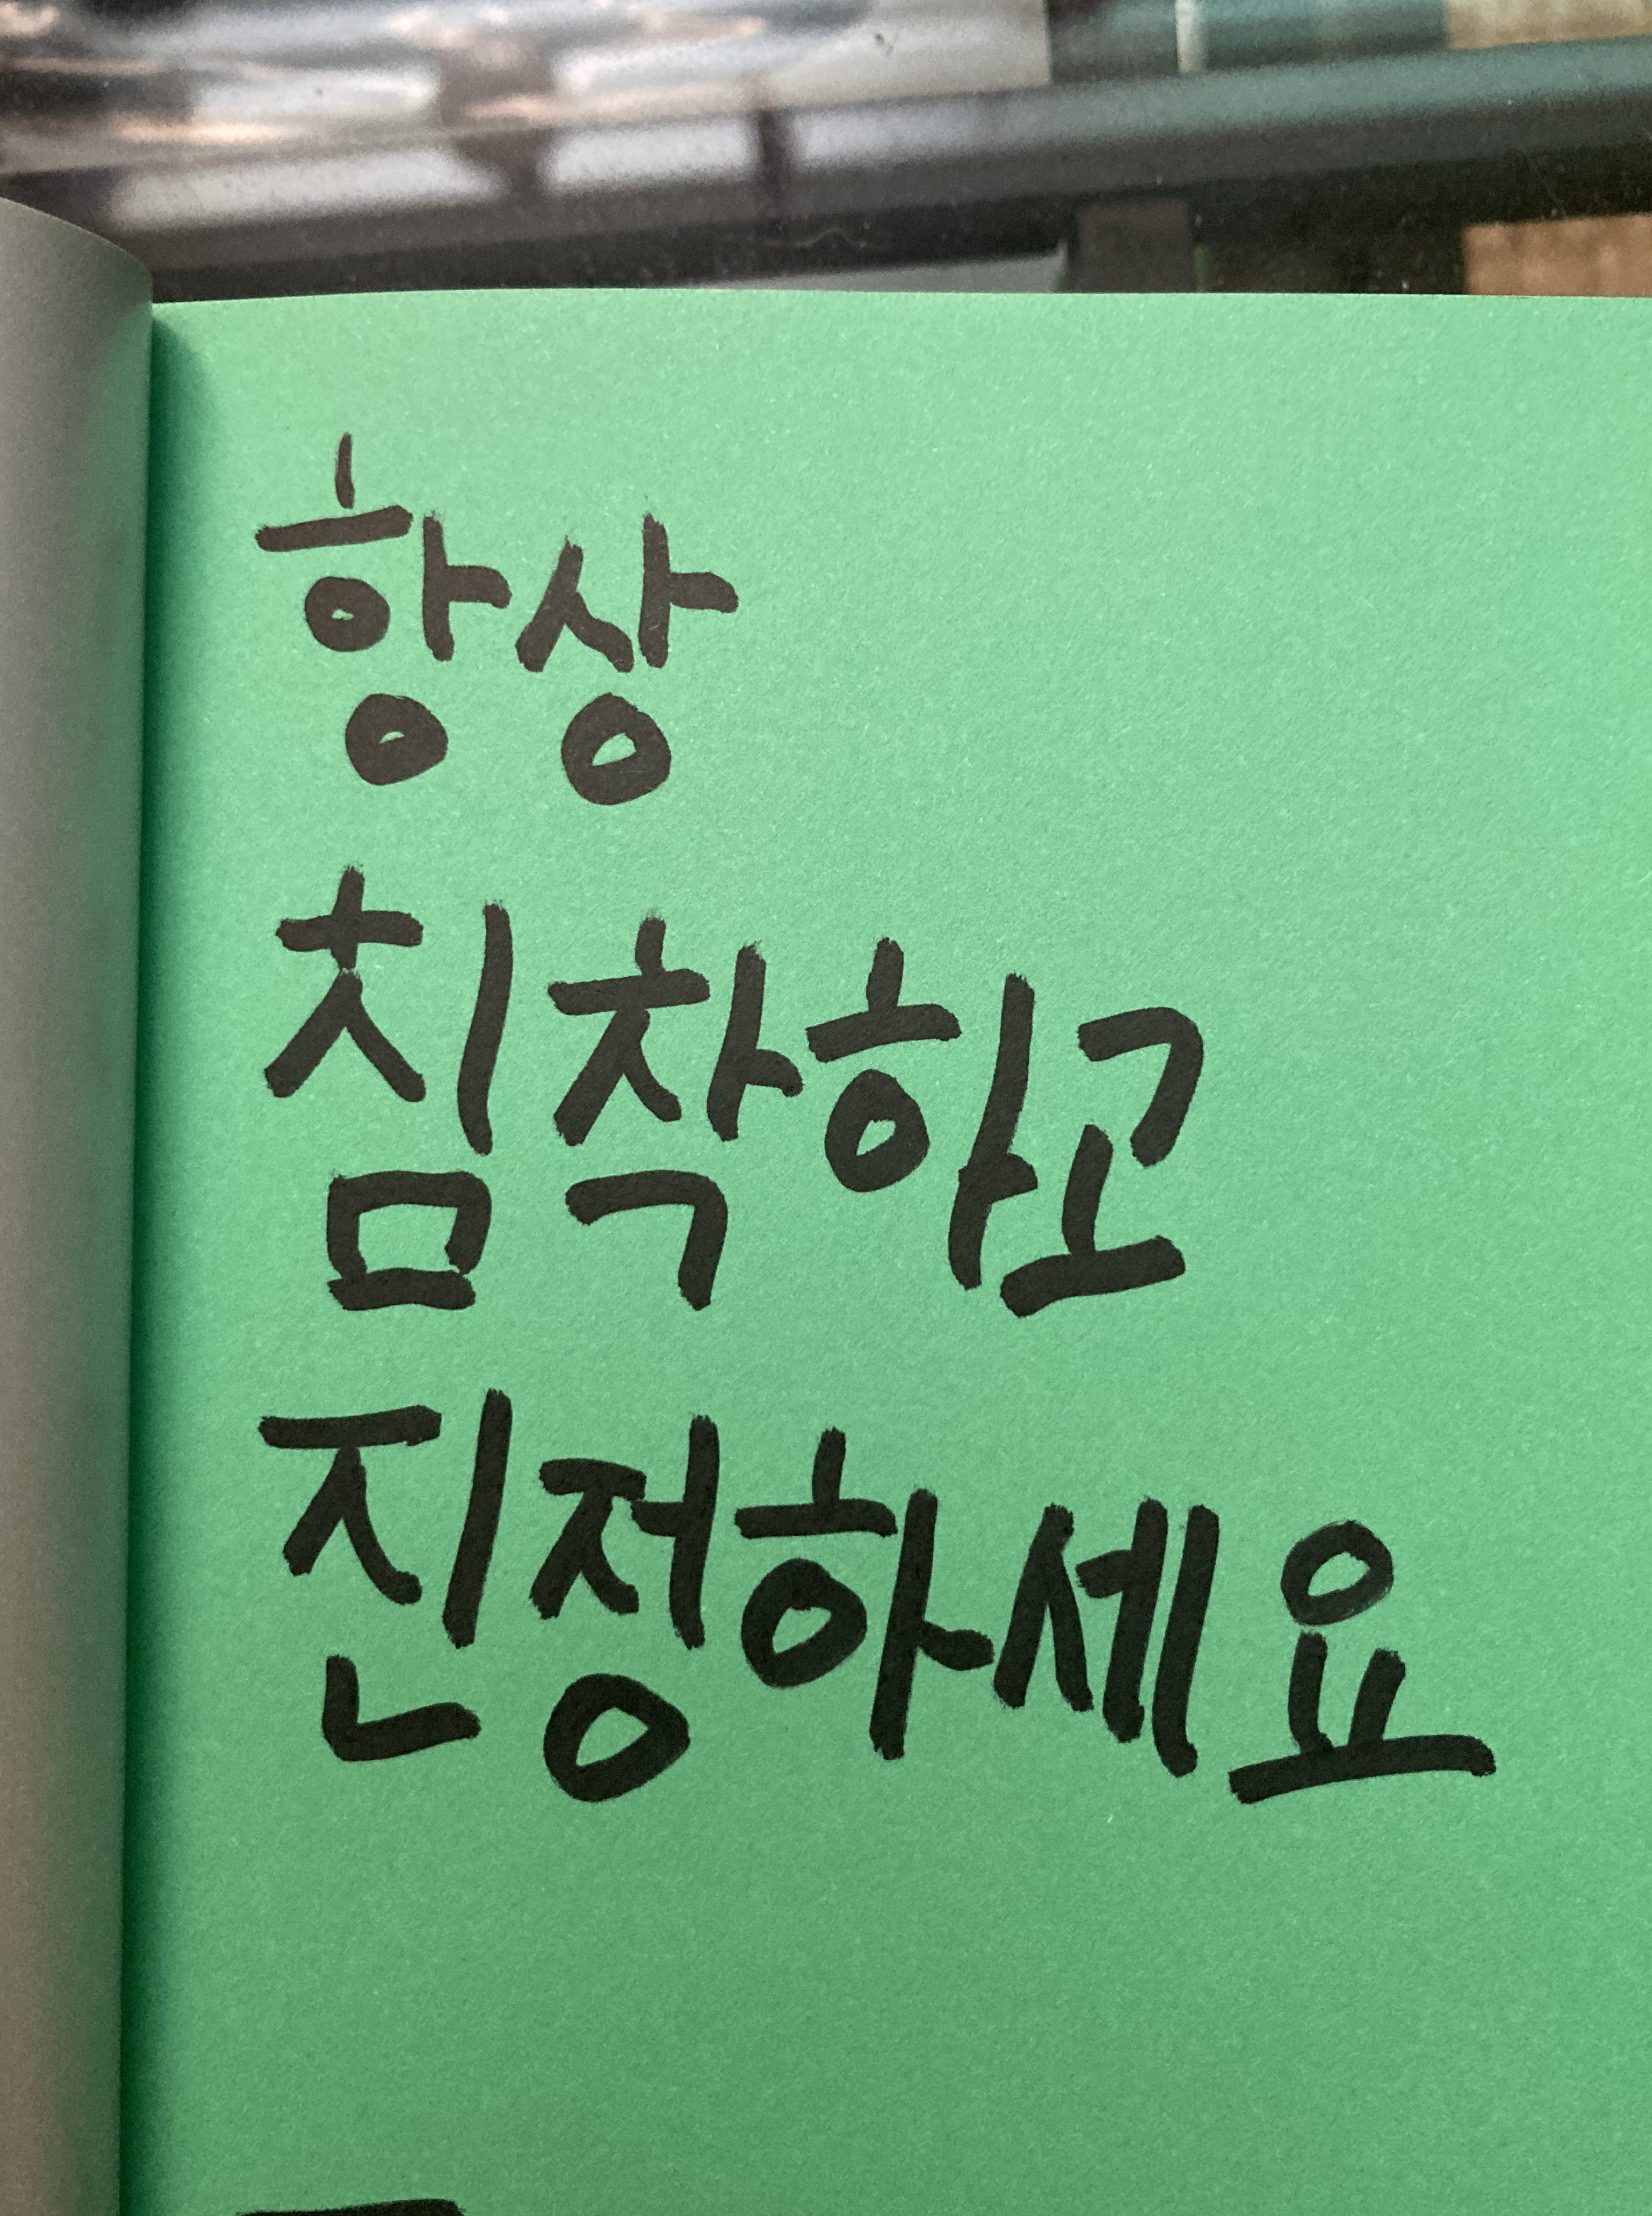 항상
침착하고
진정하세요